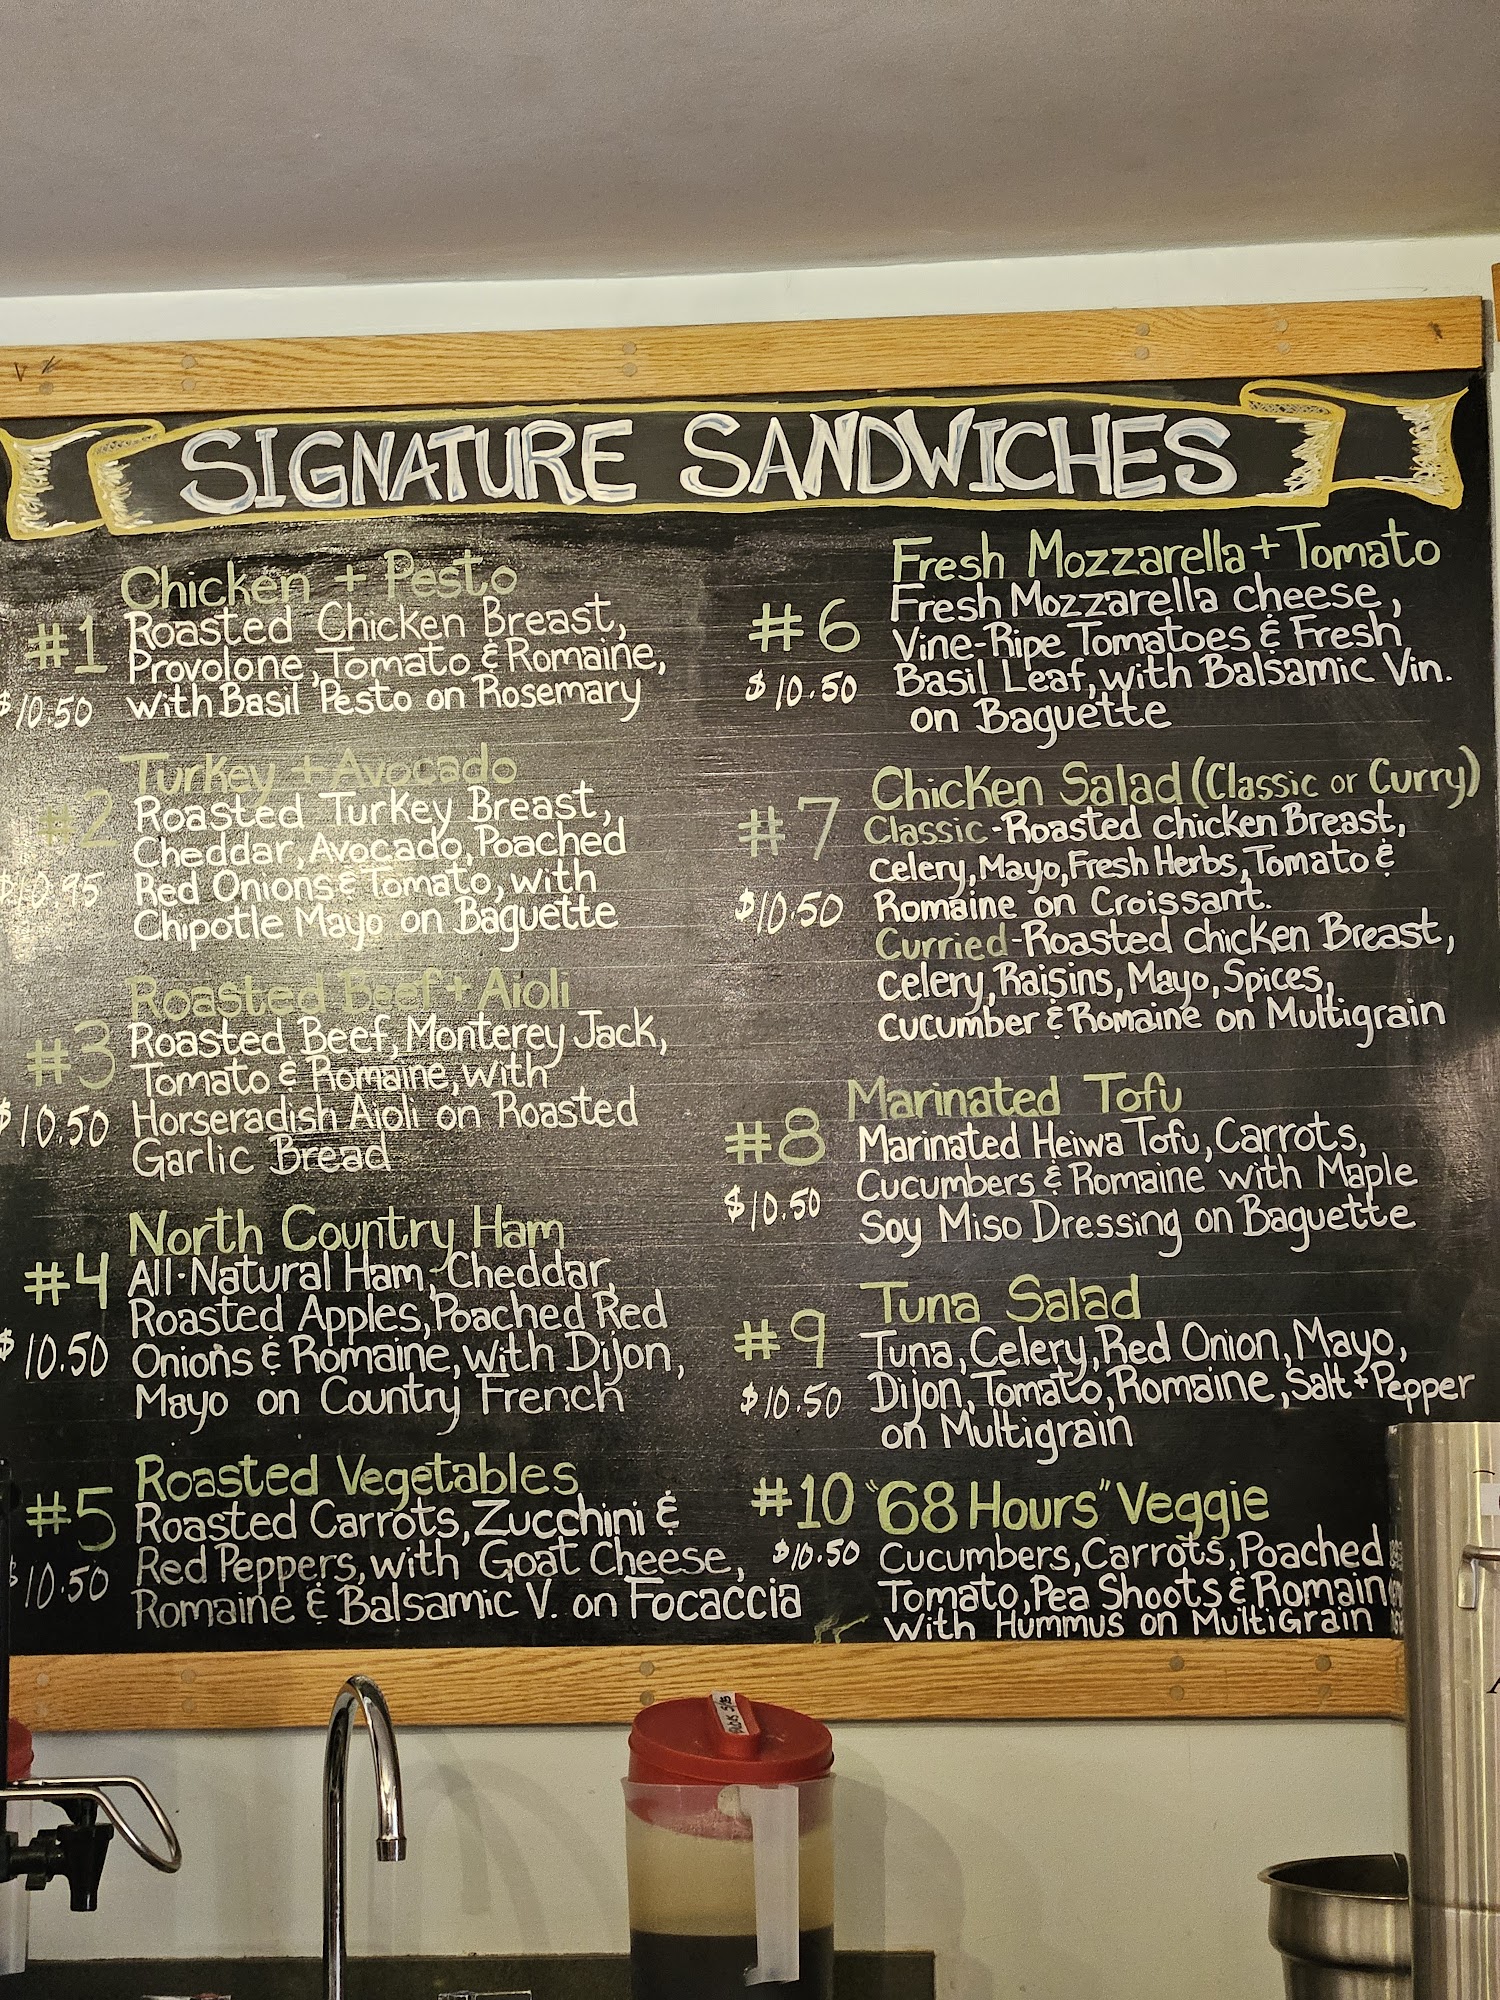 SIGNATURE SANDWICHES
Chicken + Pesto
#1
Roasted Chicken Breast,
Provolone, Tomato & Romaine,
$10.50
with Basil Pesto on Rosemary
Turkey + Avocado
#2
Roasted Turkey Breast,
Cheddar, Avocado, Poached
$10.95
Red Onions & Tomato, with
Chipotle Mayo on Baguette
Roasted Beef + Aioli
#3
Roasted Beef, Monterey Jack,
Tomato & Romaine, with
$10.50
Horseradish Aioli on Roasted
Garlic Bread
North Country Ham
#4
All-Natural Ham, Cheddar,
Roasted Apples, Poached Red
$10.50
Onions & Romaine, with Dijon,
Mayo on Country French
Roasted Vegetables
#5
Roasted Carrots, Zucchini &
Red Peppers, with Goat Cheese,
$10.50
Romaine & Balsamic V. on Focaccia
Fresh Mozzarella + Tomato
#6
Fresh Mozzarella Cheese,
Vine-Ripe Tomatoes & Fresh
$10.50
Basil Leaf, with Balsamic Vin.
on Baguette
Chicken Salad (Classic or Curry)
#7
Classic - Roasted Chicken Breast,
Celery, Mayo, Fresh Herbs, Tomato &
$10.50
Romaine on Croissant.
Curried - Roasted Chicken Breast,
Celery, Raisins, Mayo, Spices,
Cucumber & Romaine on Multigrain
Marinated Tofu
#8
Marinated Heiwa Tofu, Carrots,
Cucumbers & Romaine with Maple
$10.50
Soy Miso Dressing on Baguette
Tuna Salad
#9
Tuna, Celery, Red Onion, Mayo,
$10.50
Dijon, Tomato, Romaine, Salt + Pepper
on Multigrain
#10
"68 Hours" Veggie
$10.50
Cucumbers, Carrots, Poached
Tomato, Pea Shoots & Romain
With Hummus on MultiGrain